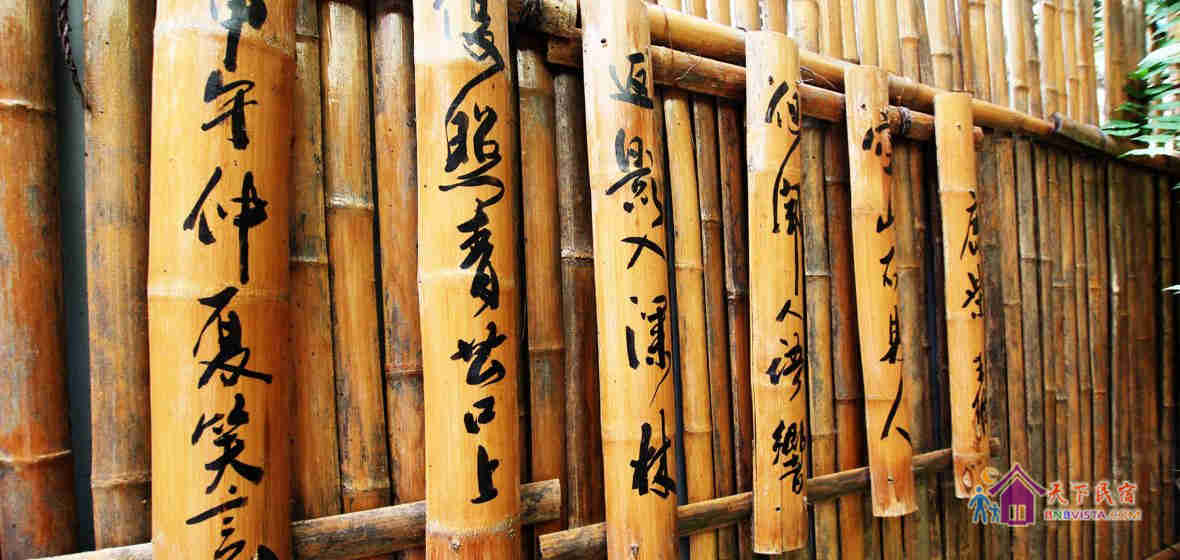 鹿柴 王維
空山不見人
但聞人語響
返影入深林
復照青苔上
甲午仲夏笑言
天下民宿
BNBVISTA.COM